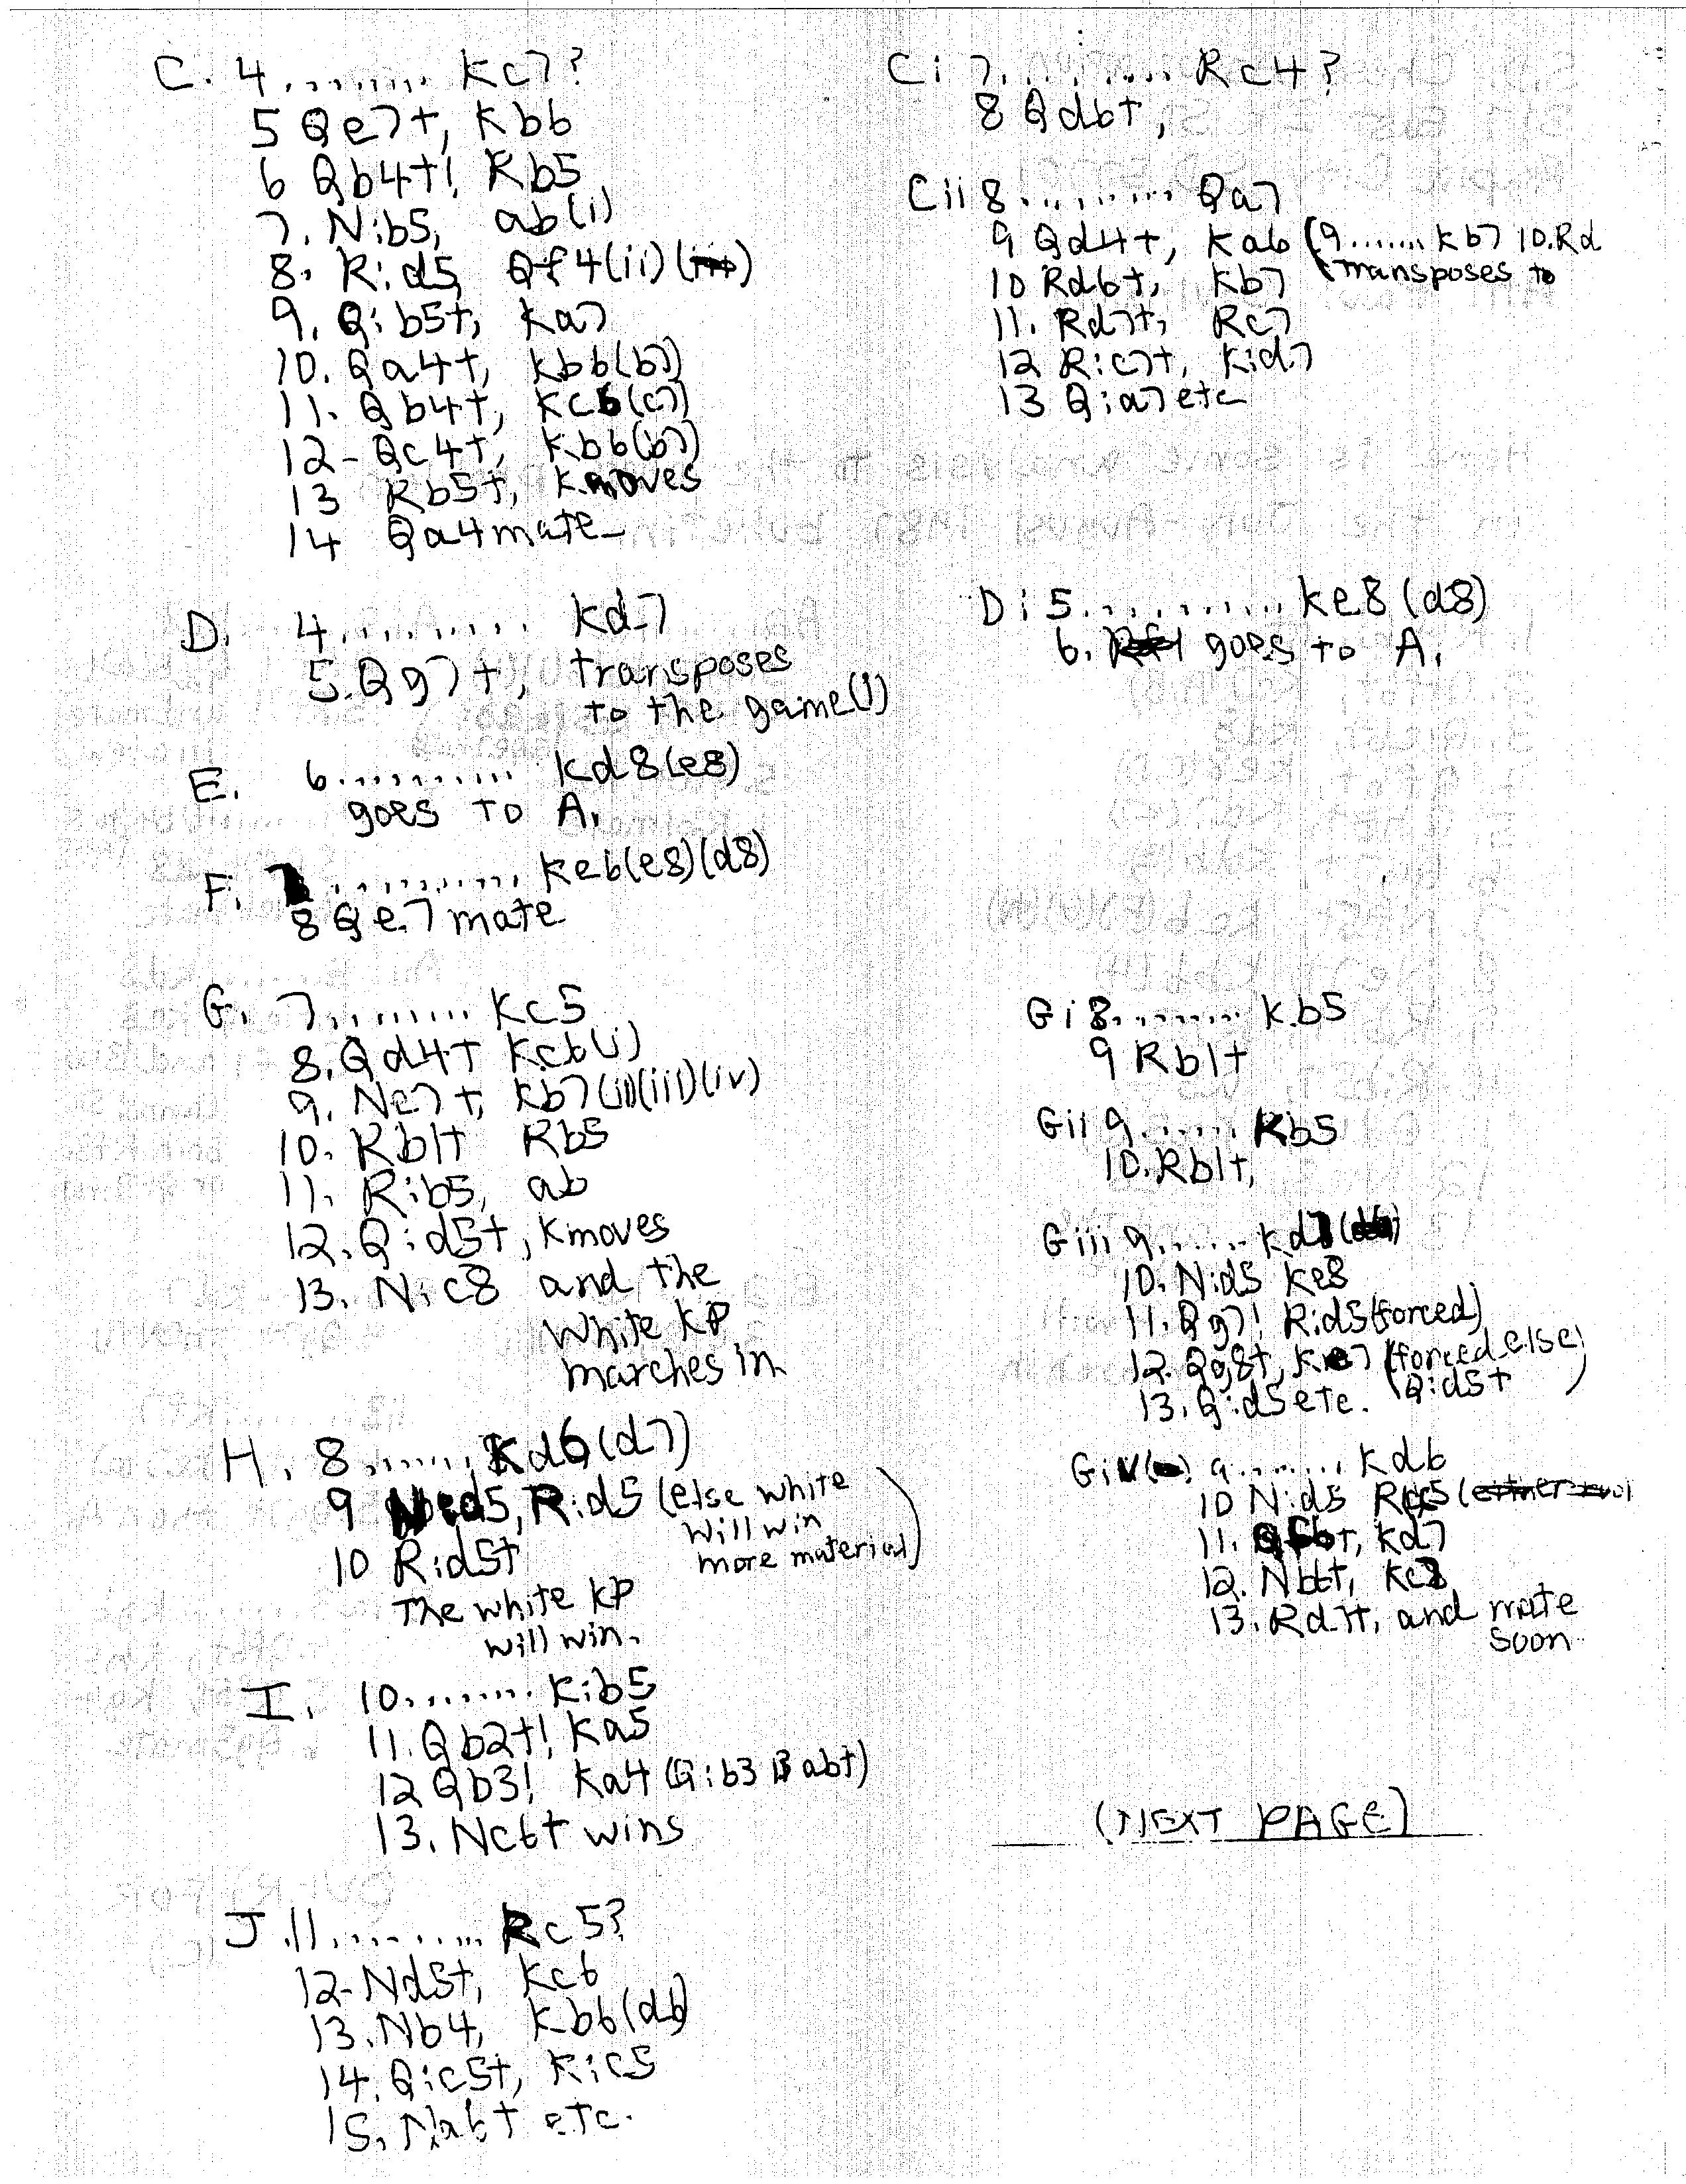 C. 4......... Kc7?
5 Qe7+, Kb6
6 Qb4+! Rb5
7. N:b5, ab(i)
8. R:d5, Qf4(ii)
9. Q:b5+, Ka7
10. Qa4+, Kb6(b7)
11. Qb4+, Kc6(c7)
12- Qc4+, Kb6(b7)
13 Rb5+, K moves
14 Qa4 mate
D. 4......... Kd7
5. Qg7+, transposes
to the game(i)
E. 6.......... Kd8(e8)
goes to A.
F. 7........... Ke6(e8)(d8)
8 Qe7 mate
G. 7......... Kc5
8. Qd4+ Kc6(i)
9. Ne7+, Kb7(ii)(iii)(iv)
10. Rb1+ Rb5
11. R:b5, ab
12. Q:d5+, K moves
13. N:c8 and the
White KP
marches in
H. 8....... Kd6(d7)
9 N:d5, R:d5 (else white
will win
more material)
10 R:d5+
The white KP
will win.
I. 10........ K:b5
11. Qb2+! Ka5
12 Qb3! Ka4 (Q:b3 13 ab+)
13. Nc6+ wins
J. 11......... Rc5?
12- Nd5+, Kc6
13. Nb4, Kb6(d6)
14. Q:c5+, K:c5
15. N:a6+ etc.
Ci 7.......... Rc4?
8 Qd6+,
Cii 8......... Qa7
9 Qd4+, Ka6 (9....... Kb7 10. Rd
transposes to
10 Rd6+, Kb7
11. Rd7+, Rc7
12 R:c7+, K:d7
13 Q:a7 etc
Di 5........... Ke8(d8)
6. goes to A.
Gi 8......... Kb5
9 Rb1+
Gii 9....... Kb5
10. Rb1+,
Giii 9...... Kd7
10. N:d5 Ke8
11. Qg7! R:d5(forced)
12. Qg8+, Ke7 (forced else
Q:d5+)
13. Q:d5 etc.
Giv 9........ Kd6
10 N:d5 Rc5
11. Qf6+, Kd7
12. Nb6+, Kc8
13. Rd7+, and mate
soon
(NEXT PAGE)